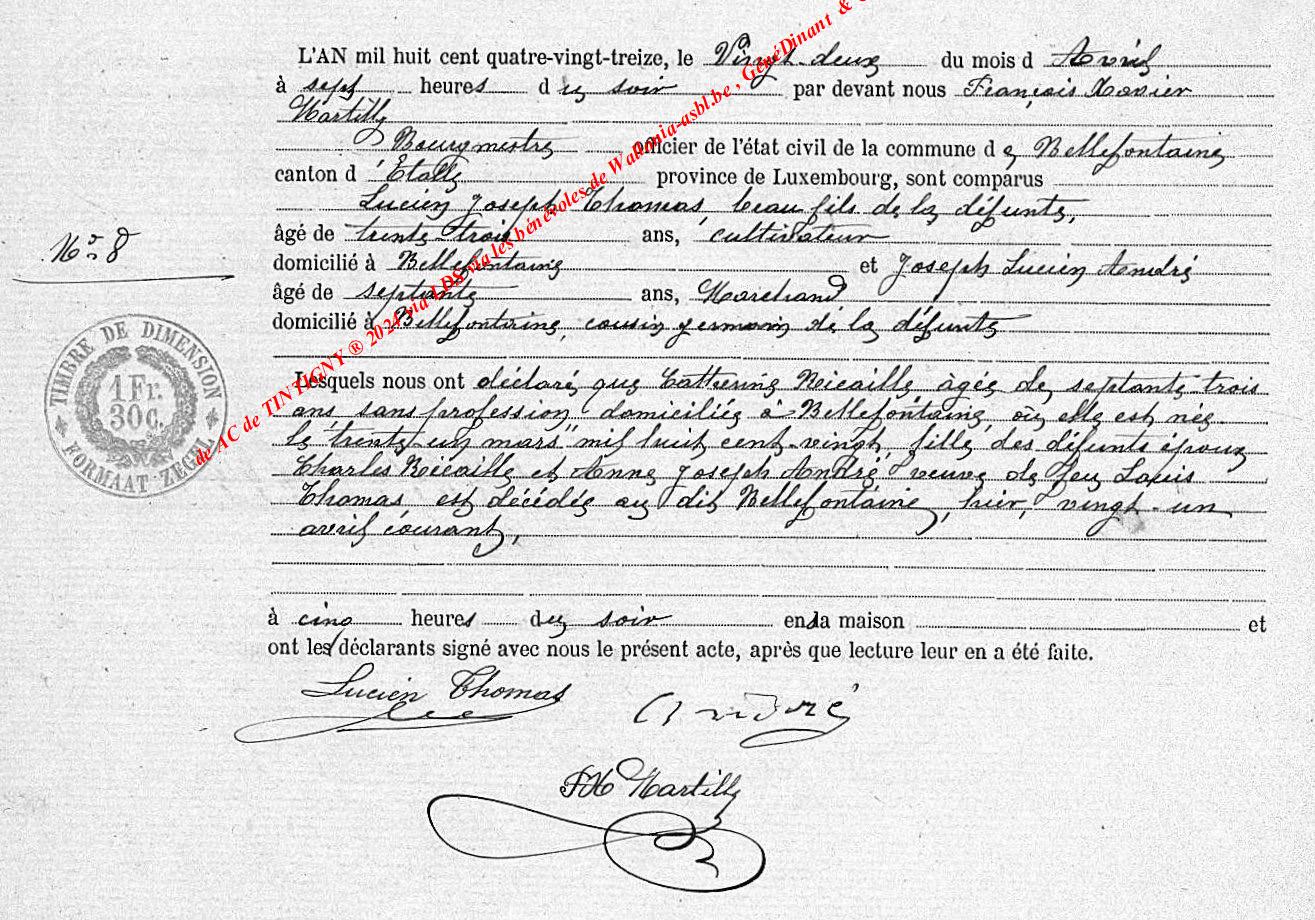 L'AN mil huit cent quatre-vingt-treize, le Vingt-deux du mois d Avril
à sept heures du soir par devant nous François Xavier
Martilly
Bourgmestre officier de l'état civil de la commune de Bellefontaine
canton d'Etalle province de Luxembourg, sont comparus
Lucien Joseph Thomas, beau fils de la défunte,
âgé de trente-trois ans, cultivateur
domicilié à Bellefontaine et Joseph Lucien André
N° 8
âgé de septante ans, Marchand
domicilié à Bellefontaine, cousin germain de la défunte
TIMBRE DE DIMENSION
1 Fr.
30 c.
FORMAAT ZEGEL
Lesquels nous ont déclaré que Catherine Nicaille âgée de septante-trois
ans sans profession, domiciliée à Bellefontaine, où elle est née
le "trente-un mars" mil huit cent-vingt, fille des défunts époux
Charles Nicaille et Anne Joseph André veuve de feu Louis
Thomas, est décédée au dit Bellefontaine, hier, vingt-un
avril courant,
à cinq heures du soir en sa maison et
ont les déclarants signé avec nous le présent acte, après que lecture leur en a été faite.
Lucien Thomas André
FX Martilly
de AC de TINTIGNY ® 2024 via LDS via les bénévoles de Wallonia-asbl.be , GénéDinant &